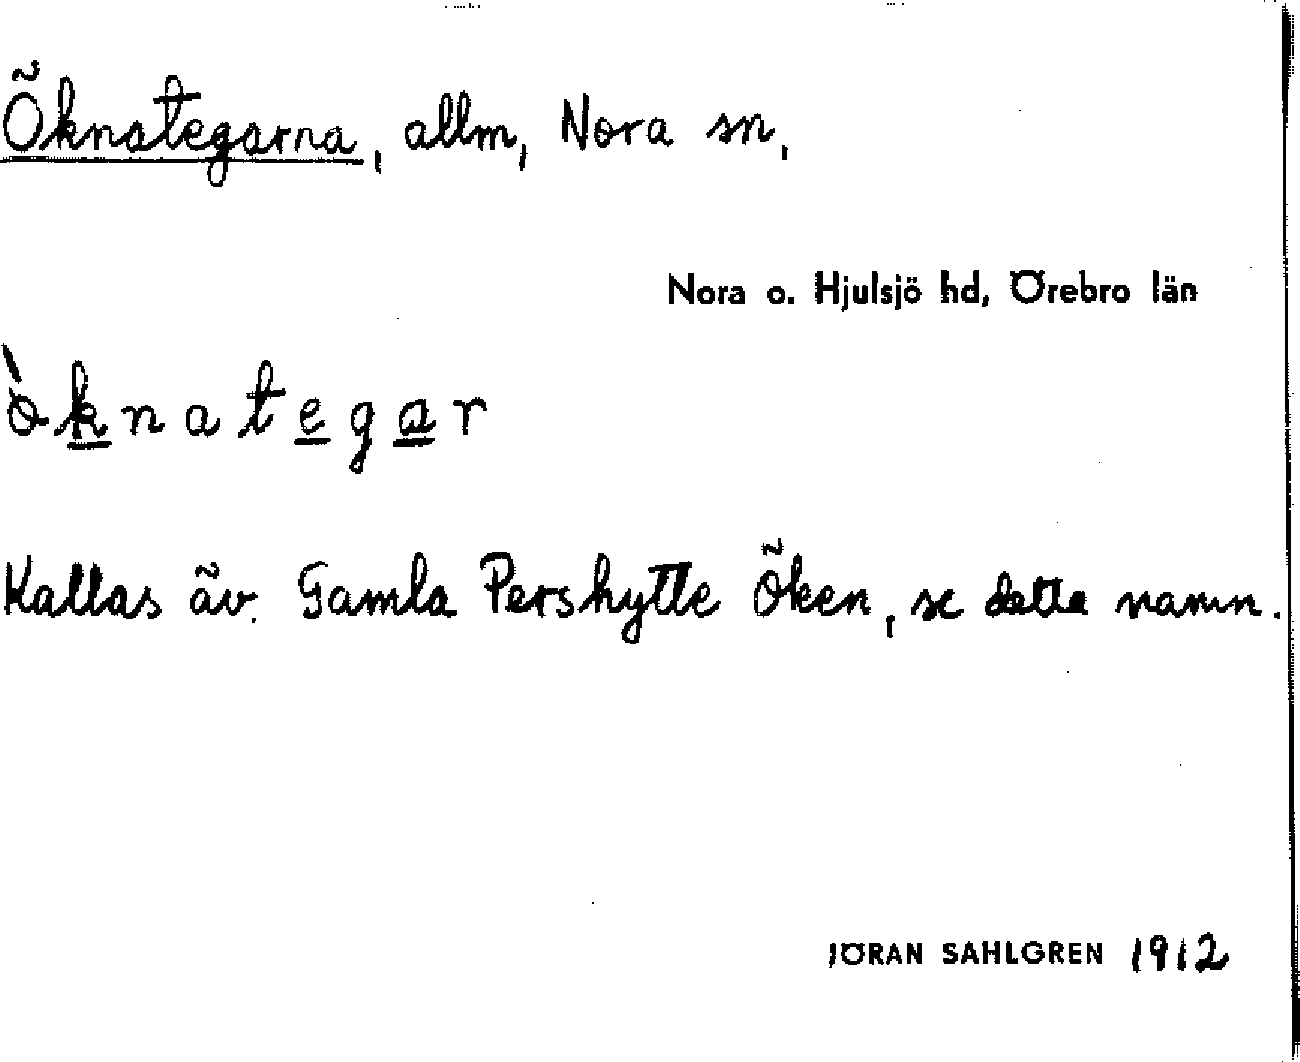 Öknategarna, allm, Nora sn,
Nora o. Hjulsjö hd, Örebro län
ò̀knategar
Kallas äv. Gamla Pershytte Öken, se detta namn.
JÖRAN SAHLGREN 1912